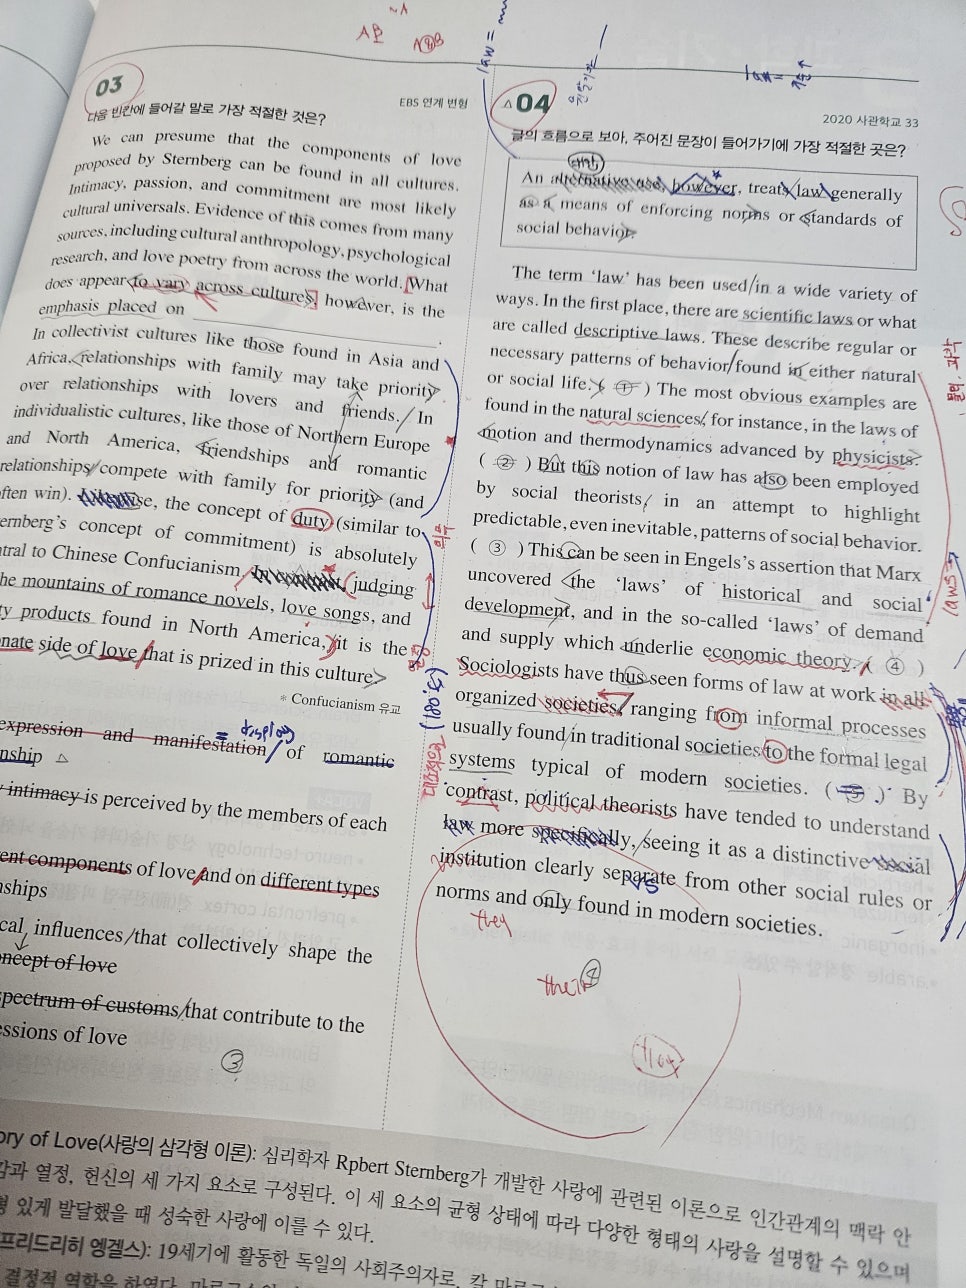 03
EBS 연계 변형
다음 빈칸에 들어갈 말로 가장 적절한 것은?
We can presume that the components of love
proposed by Sternberg can be found in all cultures.
Intimacy, passion, and commitment are most likely
cultural universals. Evidence of this comes from many
sources, including cultural anthropology, psychological
research, and love poetry from across the world. What
does appear to vary across cultures, however, is the
emphasis placed on ____________.
In collectivist cultures like those found in Asia and
Africa, relationships with family may take priority
over relationships with lovers and friends. In
individualistic cultures, like those of Northern Europe
and North America, friendships and romantic
relationships compete with family for priority (and
ften win). the concept of duty (similar to
ernberg's concept of commitment) is absolutely
tral to Chinese Confucianism, judging
he mountains of romance novels, love songs, and
ty products found in North America, it is the
nate side of love that is prized in this culture
* Confucianism 유교
의무
expression and manifestation of romantic
display
nship
intimacy is perceived by the members of each
ent components of love and on different types
nships
cal influences that collectively shape the
ncept of love
spectrum of customs that contribute to the
essions of love
③
04
2020 사관학교 33
글의 흐름으로 보아, 주어진 문장이 들어가기에 가장 적절한 곳은?
An alternative use, however, treats law generally
as a means of enforcing norms or standards of
social behavior.
The term 'law' has been used in a wide variety of
ways. In the first place, there are scientific laws or what
are called descriptive laws. These describe regular or
necessary patterns of behavior found in either natural
or social life. ( ① ) The most obvious examples are
found in the natural sciences, for instance, in the laws of
motion and thermodynamics advanced by physicists.
( ② ) But this notion of law has also been employed
by social theorists, in an attempt to highlight
predictable, even inevitable, patterns of social behavior.
( ③ ) This can be seen in Engels's assertion that Marx
uncovered the 'laws' of historical and social
development, and in the so-called 'laws' of demand
and supply which underlie economic theory. ( ④ )
Sociologists have thus seen forms of law at work in all
organized societies, ranging from informal processes
usually found in traditional societies to the formal legal
systems typical of modern societies. ( ⑤ ) By
contrast, political theorists have tended to understand
law more specifically, seeing it as a distinctive social
institution clearly separate from other social rules or
norms and only found in modern societies.
they
their
④
they
ory of Love(사랑의 삼각형 이론): 심리학자 Rpbert Sternberg가 개발한 사랑에 관련된 이론으로 인간관계의 맥락 안
감과 열정, 헌신의 세 가지 요소로 구성된다. 이 세 요소의 균형 상태에 따라 다양한 형태의 사랑을 설명할 수 있으며
형 있게 발달했을 때 성숙한 사랑에 이를 수 있다.
프리드리히 엥겔스): 19세기에 활동한 독일의 사회주의자로,
결정적 역할을 하였다.